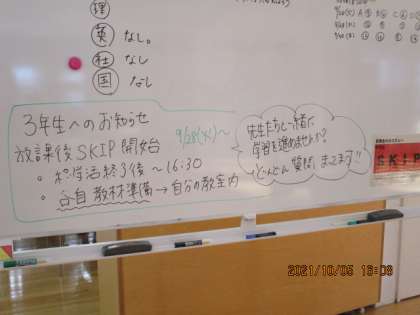 理
英 なし。
社 なし
国 なし
3年生へのお知らせ
放課後SKIP開始
9/28(火)～
・終学活終了後～16:30
・各自教材準備→自分の教室内
先生たちと一緒に
学習を進めませんか?
どんどん質問、まってます!!
SKIP
2021/10/05 16:08